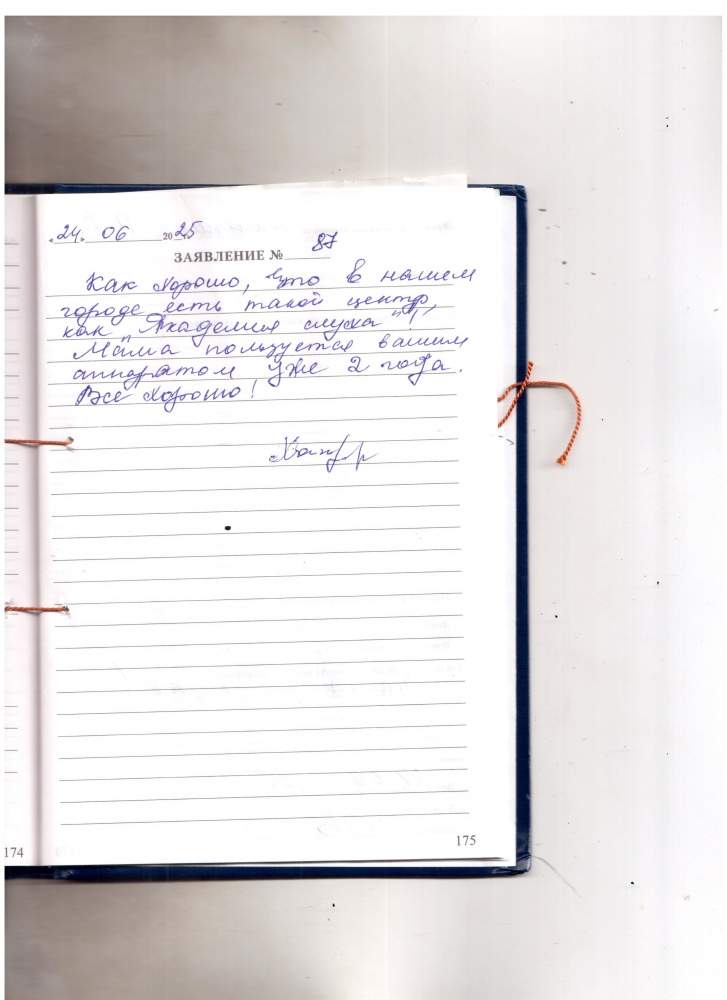 «24» 06 2025
ЗАЯВЛЕНИЕ № 87
Как хорошо, что в нашем
городе есть такой центр,
как "Академия слуха"!
Мама пользуется вашим
аппаратом уже 2 года.
Все хорошо!
174
175